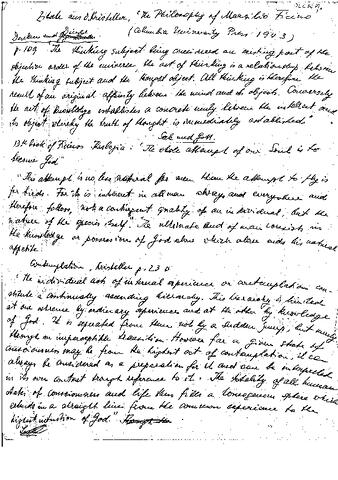 Zitate aus Kristeller, "The Philosophy of Marsilio Ficino
(Columbia University Press 1943)
Denken und
p. 109 "The thinking subject being considered an existing part of the
objective order of the universe the act of thinking is a relationship between
the thinking subject and the thought object. All thinking is therefore the
result of an original affinity between the mind and its objects. Conversely
the act of knowledge establishes a concrete unity between the intellect and
its object whereby the truth of thought is immediately established."
Seele und Gott.
13th book of Ficinos Theologia: "The whole attempt of our Soul is to
become God"
"This attempt is no less natural for men than the attempt to fly is
for birds. For it is inherent in all men always and everywhere and
therefore follows, not a contingent quality of an individual, but the
nature of the species itself." The ultimate end of man consists in
the knowledge or possession of God alone which alone ends his natural
appetite.
Contemplation, Kristeller p. 230
"The individual acts of internal experience or contemplation con-
stitute a continually ascending hierarchy. This hierarchy is limited
at one extreme by ordinary experience and at the other by knowledge
of God. It is separated from them not by a sudden jump, but only
through an imperceptible transition. However far a given state of
consciousness may be from the highest act of contemplation, it can
always be considered as a preparation for it and can be interpreted
in its own content through reference to it." The totality of all human
states of consciousness and life thus fills a homogeneous sphere which
extends in a straight line from the common experience to the
highest intuition of God."